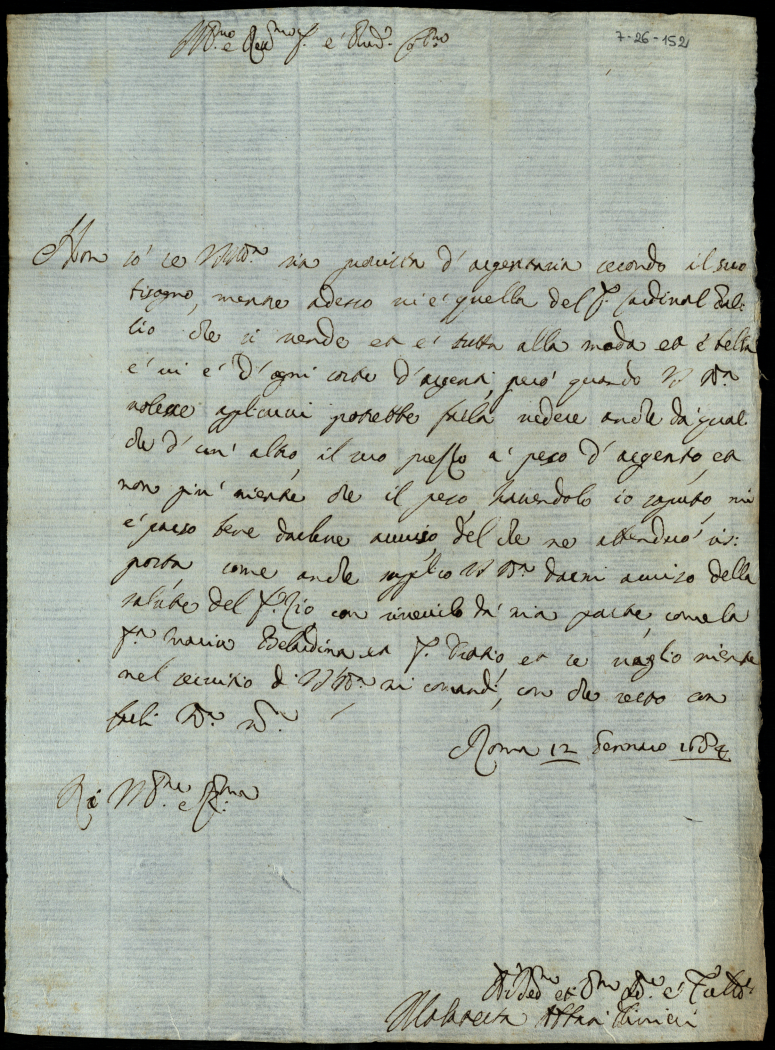 7-26-152
Non só se VS Ill.ma sia provista d'argentaria secondo il suo
bisogno, mentre adesso vi è quella del S.r Cardinal Gal:
lio che si vende et è tutta alla moda et è bella
e vi è d'ogni sorte d'argenti, però quando VS Ill.ma
volesse applicarvi potrebbe farla vedere anche da qual
che d'un' altro, il suo prezzo a peso d'argento, et
non più niente che il peso, havendolo io saputo, mi
è parso bene darlene avviso del che ne attenderò ris:
posta come anche supplico VS Ill.ma darmi avviso della
salute del S.r Zio, con riverirlo da mia parte, come la
S.ra Maria et S.r Oratio, et se vaglio niente
nel servitio di VS Ill.ma mi comandi, con che resto con
farli
Roma 12 Gennaro 1684
Di VS Ill.ma e R.ma